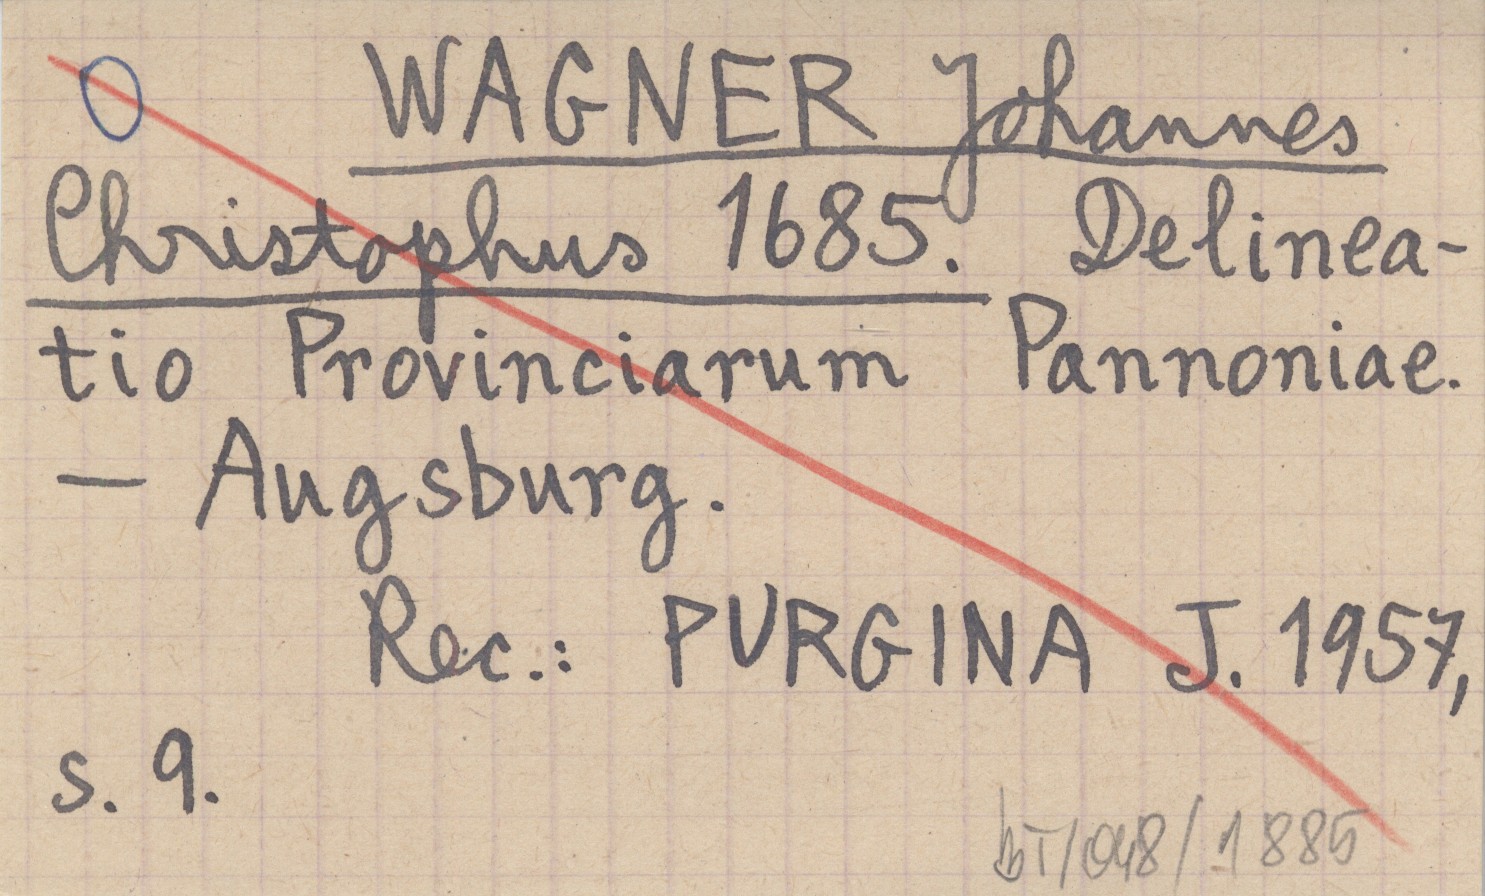 WAGNER Johannes
Christophus 1685. Delinea-
tio Provinciarum Pannoniae.
— Augsburg.
Rec.: PURGINA J. 1957,
s. 9.
bT/048/1885